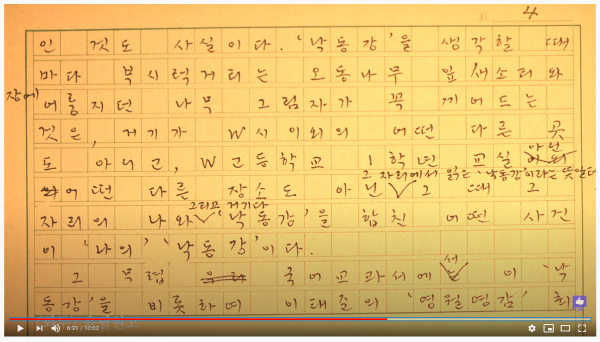 4
인 것도 사실이다. '낙동강'을 생각할 때
마다 부시럭거리는 오동나무 잎새소리와
장에
어룽지던 나무 그림자가 꼭 끼어드는
것은, 거기가 W시 이외의 어떤 다른 곳
아닌
도 아니고, W고등학교 1학년 교실
그 자리에서 읽는 '낙동강'이라는 뜻일터
어떤 다른 장소도 아닌 그 때 그
그리고 거기다
자리의 나와 '낙동강'을 합친 어떤 사건
이 '나의' '낙동강'이다.
서
그 무렵 국어교과서에 이 '낙
동강'을 비롯하여 이태준의 '영월영감' 최
6:31 / 10:02